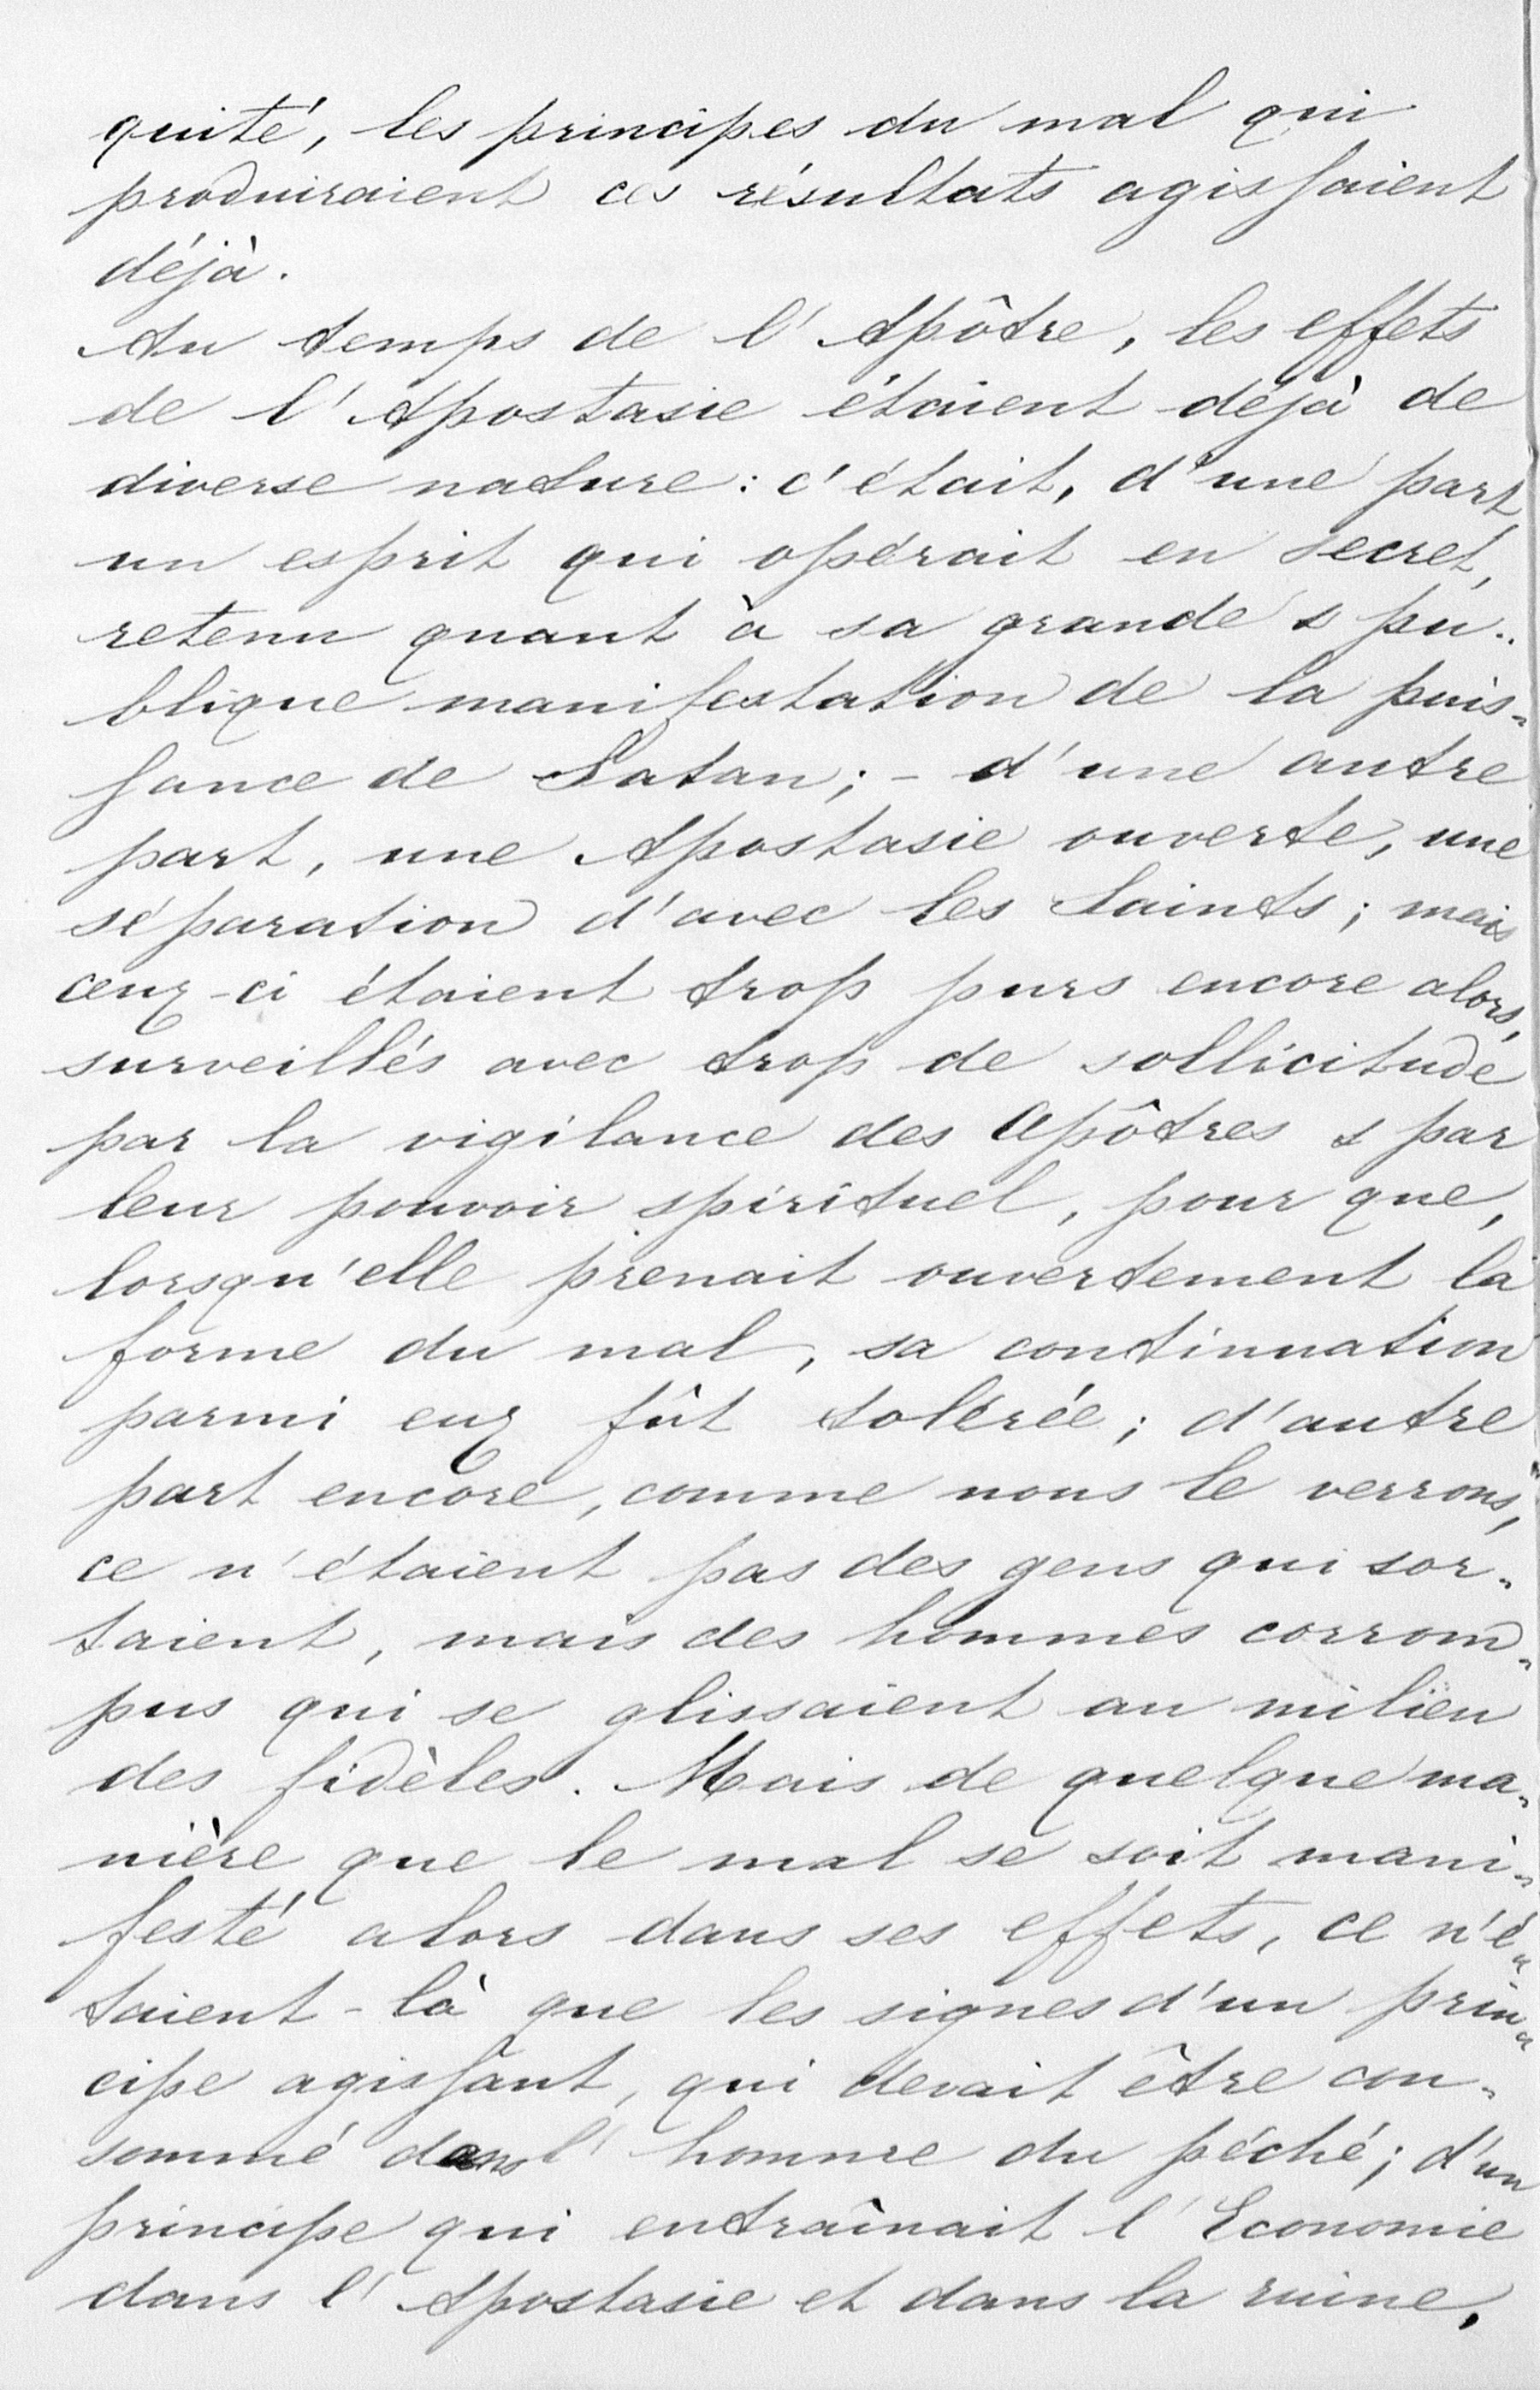 quité, les principes du mal qui
produiraient ces résultats agissaient
déjà.
Au temps de l'Apôtre, les effets
de l'Apostasie étaient déjà de
diverse nature: c'était, d'une part,
un esprit qui opérait en secret,
retenu quant à sa grande & pu-
blique manifestation de la puis-
sance de Satan; - d'une autre
part, une Apostasie ouverte, une
séparation d'avec les Saints; mais
ceux-ci étaient trop purs encore alors,
surveillés avec trop de sollicitude
par la vigilance des Apôtres & par
leur pouvoir spirituel, pour que,
lorsqu'elle prenait ouvertement la
forme du mal, sa continuation
parmi eux fût tolérée; d'autre
part encore, comme nous le verrons,
ce n'étaient pas des gens qui sor-
taient, mais des hommes corrom-
pus qui se glissaient au milieu
des fidèles. Mais de quelque ma-
nière que le mal se soit mani-
festé alors dans ses effets, ce n'é-
taient-là que les signes d'un prin-
cipe agissant, qui devait être con-
sommé dans l'homme du péché; d'un
principe qui entraînait l'Economie
dans l'Apostasie et dans la ruine.